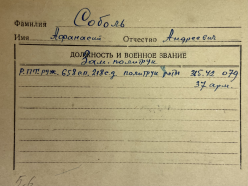 Фамилия Соболь
Имя Афанасий Отчество Андреевич
ДОЛЖНОСТЬ И ВОЕННОЕ ЗВАНИЕ
Зам. политрук
658 сп. 218 с.д. политрук роты
37 арм.